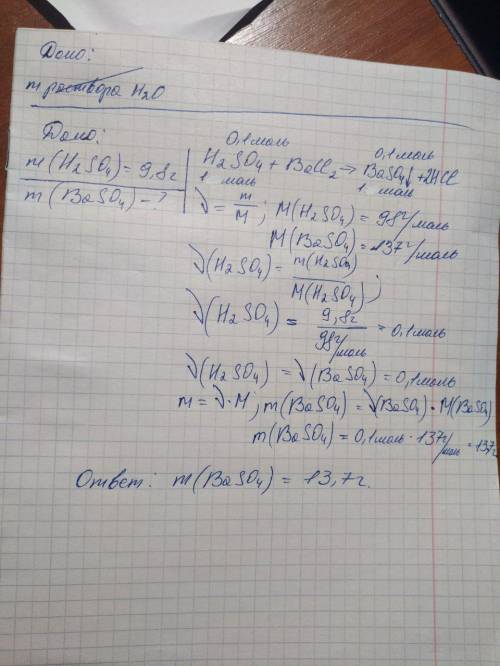 Дано:
m раствора H₂O
Дано:
m(H₂SO₄) = 9,8г
m(BaSO₄) - ?
0,1 моль 0,1 моль
H₂SO₄ + BaCl₂ → BaSO₄↓ + 2HCl
1 моль 1 моль
ν = m/M ; M(H₂SO₄) = 98 г/моль
M(BaSO₄) = 137 г/моль
ν(H₂SO₄) = m(H₂SO₄)/M(H₂SO₄) ;
ν(H₂SO₄) = 9,8г/98г/моль = 0,1 моль
ν(H₂SO₄) = ν(BaSO₄) = 0,1 моль
m = ν·M ; m(BaSO₄) = ν(BaSO₄) · M(BaSO₄)
m(BaSO₄) = 0,1 моль · 137 г/моль = 13,7г
Ответ: m(BaSO₄) = 13,7г.